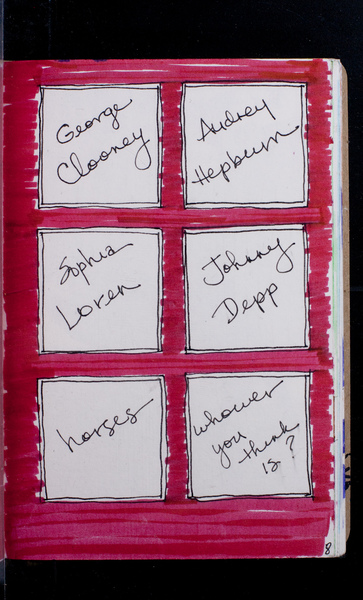 George
Clooney
Audrey
Hepburn
Sophia
Loren
Johnny
Depp
horses
whoever
you
think
is?
8